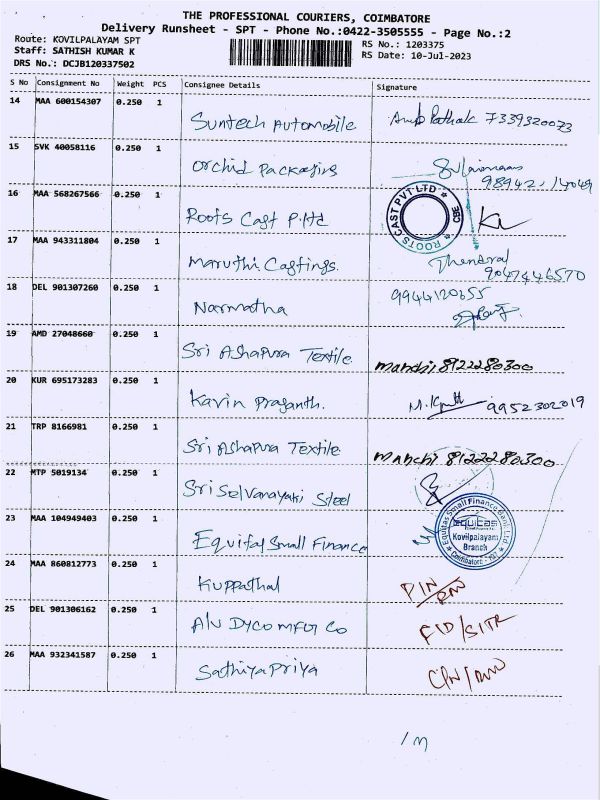 THE PROFESSIONAL COURIERS, COIMBATORE
Delivery Runsheet - SPT - Phone No.:0422-3505555 - Page No.:2
Route: KOVILPALAYAM SPT
Staff: SATHISH KUMAR K
DRS No.: DCJB120337502
RS No.: 1203375
RS Date: 10-Jul-2023
S No Consignment No Weight PCS Consignee Details Signature
14 MAA 600154307 0.250 1 Suntech Automobile 7339320073
15 SVK 40058116 0.250 1 Orchid Packagings
98942
16 MAA 568267566 0.250 1 Roots Cast P.ltd ROOTS CAST PVT LTD CBE
17 MAA 943311804 0.250 1 Maruthi Castings. Thendral
9047446570
18 DEL 901307260 0.250 1 Narmatha 9944120655
19 AMD 27048660 0.250 1 Sri Ashapura Textile manchi 8122280300
20 KUR 695173283 0.250 1 Kavin Prasanth. 9952302019
21 TRP 8166981 0.250 1 Sri Ashapura Textile manchi 8122280300
22 MTP 5019134 0.250 1 Sri Selvanayaki Steel
23 MAA 104949403 0.250 1 Equitas Small Finance
Equitas Small Finance Bank Ltd.
equitas
Kovilpalayam
Branch
Coimbatore
24 MAA 860812773 0.250 1 Kuppathal
25 DEL 901306162 0.250 1 Alv Dyco mfgr Co
26 MAA 932341587 0.250 1 Sathiya Priya